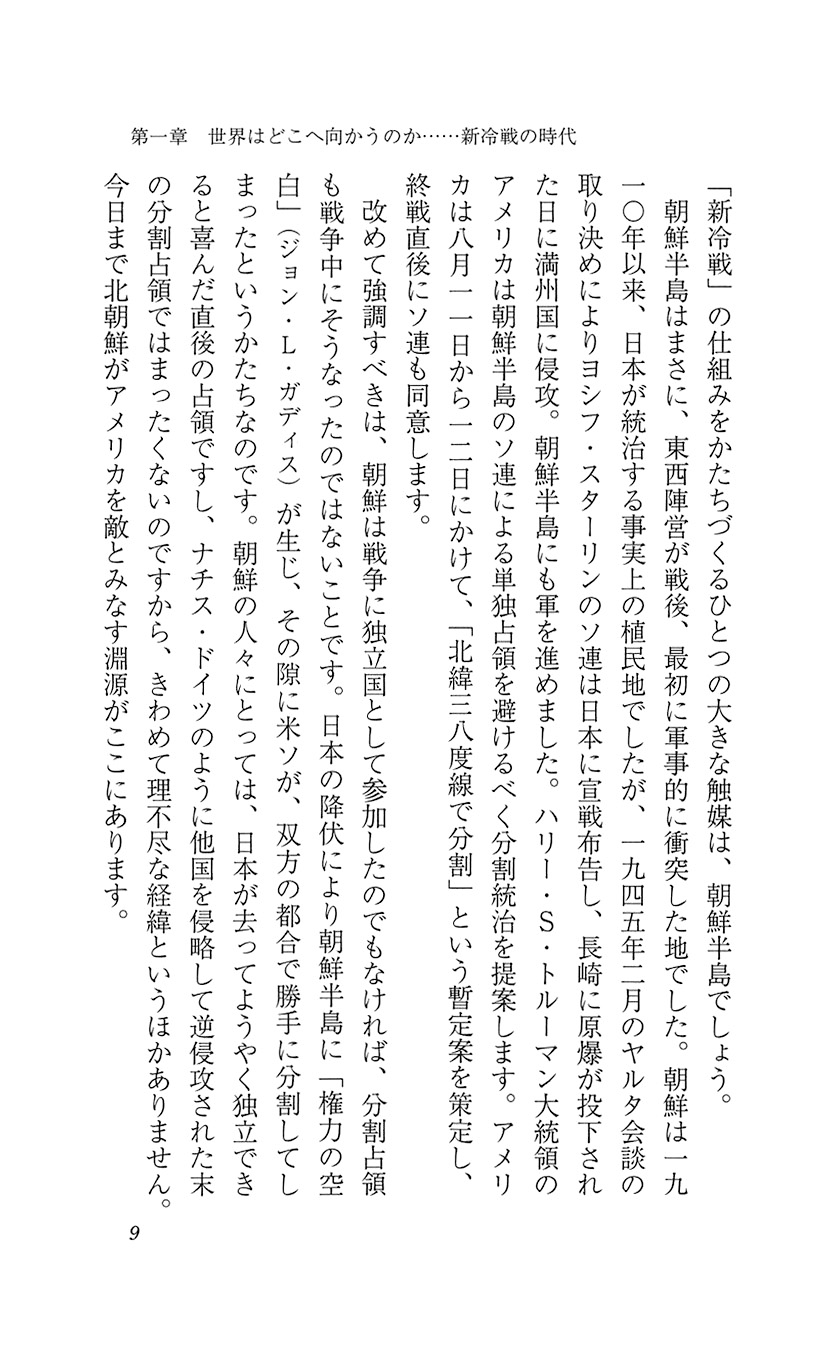 第一章　世界はどこへ向かうのか……新冷戦の時代
「新冷戦」の仕組みをかたちづくるひとつの大きな触媒は、朝鮮半島でしょう。
　朝鮮半島はまさに、東西陣営が戦後、最初に軍事的に衝突した地でした。朝鮮は一九
一〇年以来、日本が統治する事実上の植民地でしたが、一九四五年二月のヤルタ会談の
取り決めによりヨシフ・スターリンのソ連は日本に宣戦布告し、長崎に原爆が投下され
た日に満州国に侵攻。朝鮮半島にも軍を進めました。ハリー・S・トルーマン大統領の
アメリカは朝鮮半島のソ連による単独占領を避けるべく分割統治を提案します。アメリ
カは八月一一日から一二日にかけて、「北緯三八度線で分割」という暫定案を策定し、
終戦直後にソ連も同意します。
　改めて強調すべきは、朝鮮は戦争に独立国として参加したのでもなければ、分割占領
も戦争中にそうなったのではないことです。日本の降伏により朝鮮半島に「権力の空
白」（ジョン・L・ガディス）が生じ、その隙に米ソが、双方の都合で勝手に分割してし
まったというかたちなのです。朝鮮の人々にとっては、日本が去ってようやく独立でき
ると喜んだ直後の占領ですし、ナチス・ドイツのように他国を侵略して逆侵攻された末
の分割占領ではまったくないのですから、きわめて理不尽な経緯というほかありません。
今日まで北朝鮮がアメリカを敵とみなす淵源がここにあります。
9